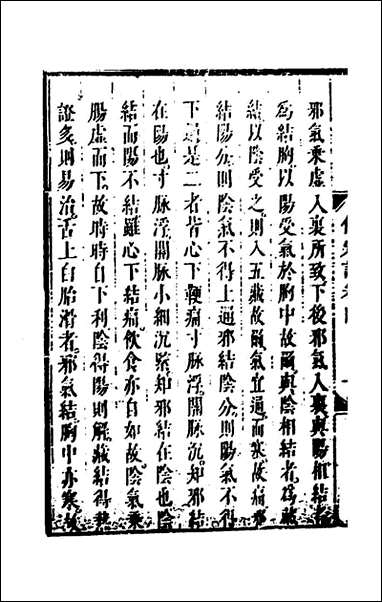 邪氣乘虛入裏所致下後邪氣入裏與陽相結者
為結胸以陽受氣於胸中故爾與陰相結者為藏
結以陰受之則入五藏故爾氣宜通而塞故痛邪
結陽分則陰氣不得上通邪結陰分則陽氣不得
下通是二者皆心下鞕痛寸脉浮關脉沉知邪結
在陽也寸脉浮關脉小細沉緊知邪結在陰也陰
結而陽不結雖心下結痛飲食亦自如故陰氣乘
腸虛而下故時時自下利陰得陽則解藏結得熱
證多則易治舌上白胎滑者邪氣結胸中亦寒故